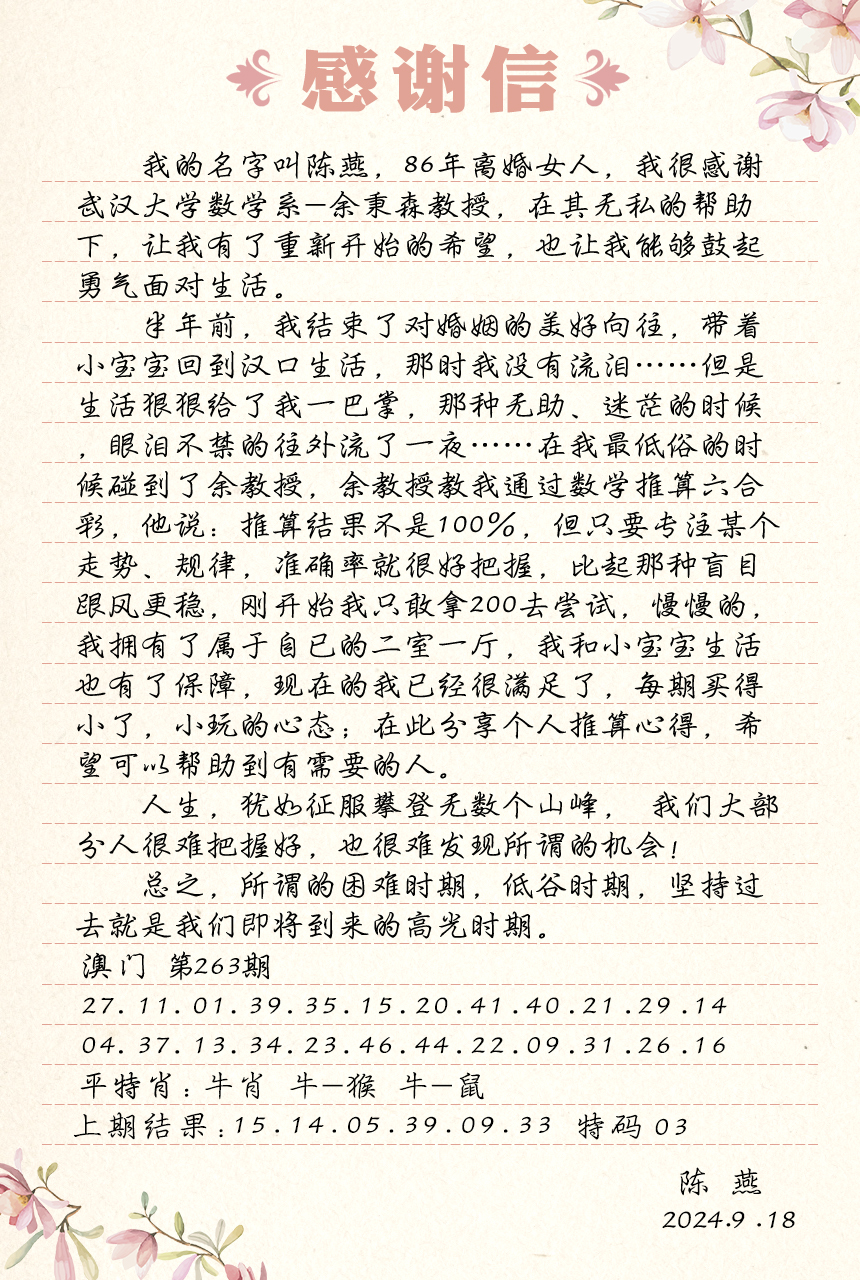 感谢信
我的名字叫陈燕，86年离婚女人，我很感谢
武汉大学数学系—余秉森教授，在其无私的帮助
下，让我有了重新开始的希望，也让我能够鼓起
勇气面对生活。
半年前，我结束了对婚姻的美好向往，带着
小宝宝回到汉口生活，那时我没有流泪……但是
生活狠狠给了我一巴掌，那种无助、迷茫的时候
，眼泪不禁的往外流了一夜……在我最低俗的时
候碰到了余教授，余教授教我通过数学推算六合
彩，他说：推算结果不是100%，但只要专注某个
走势、规律，准确率就很好把握，比起那种盲目
跟风更稳，刚开始我只敢拿200去尝试，慢慢的，
我拥有了属于自已的二室一厅，我和小宝宝生活
也有了保障，现在的我已经很满足了，每期买得
小了，小玩的心态；在此分享个人推算心得，希
望可以帮助到有需要的人。
人生，犹如征服攀登无数个山峰， 我们大部
分人很难把握好，也很难发现所谓的机会！
总之，所谓的困难时期，低谷时期，坚持过
去就是我们即将到来的高光时期。
澳门 第263期
27.11.01.39.35.15.20.41.40.21.29.14
04.37.13.34.23.46.44.22.09.31.26.16
平特肖：牛肖 牛—猴 牛—鼠
上期结果：15.14.05.39.09.33 特码 03
陈 燕
2024.9.18